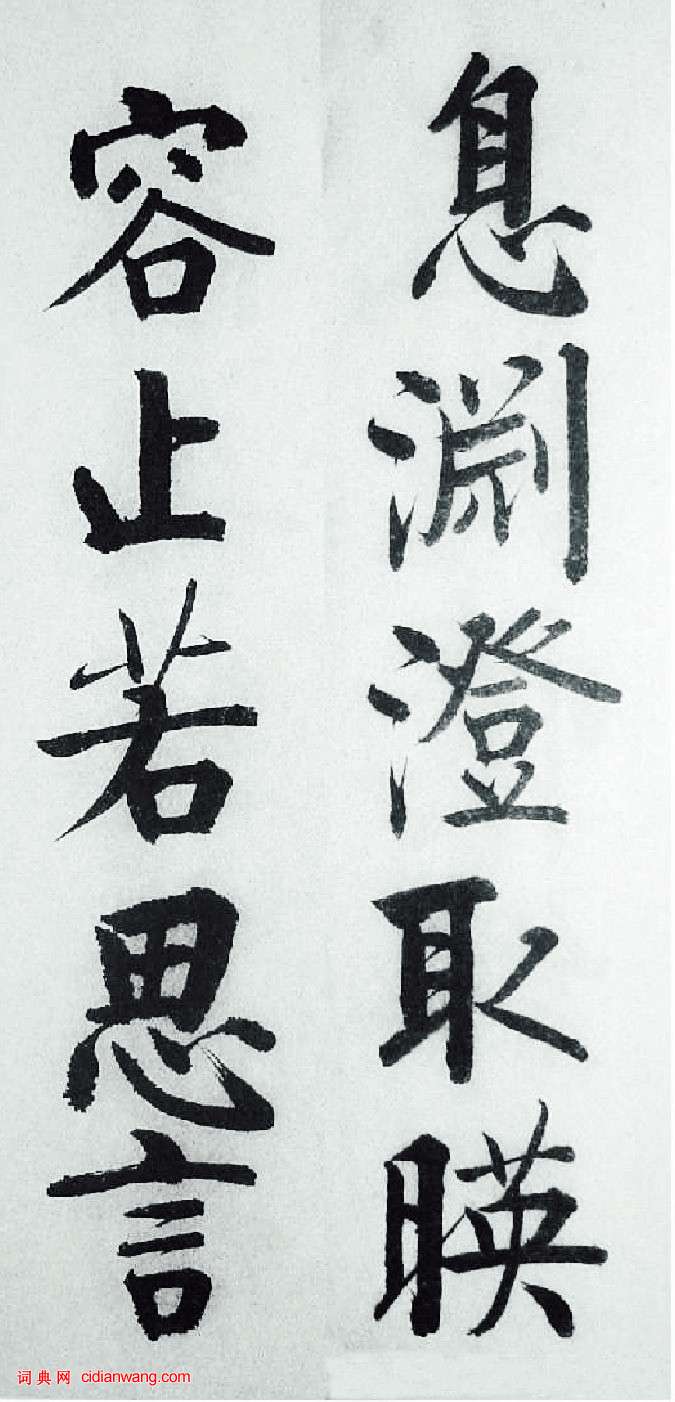 息渊澄取暎
容止若思言
词典网 cidianwang.com